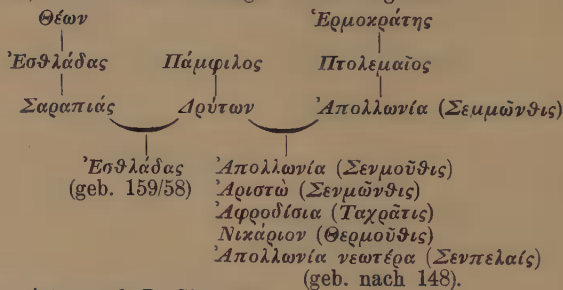 Θέων Ἑρμοκράτης
Ἐσθλάδας Πάμφιλος Πτολεμαῖος
Σαραπιάς Δρύτων Ἀπολλωνία (Σεμμῶνθις)
Ἐσθλάδας Ἀπολλωνία (Σενμοῦθις)
(geb. 159/58) Ἀριστὼ (Σενμῶνθις)
Ἀφροδίσια (Ταχρᾶτις)
Νικάριον (Θερμοῦθις)
Ἀπολλωνία νεωτέρα (Σενπελαίς)
(geb. nach 148).